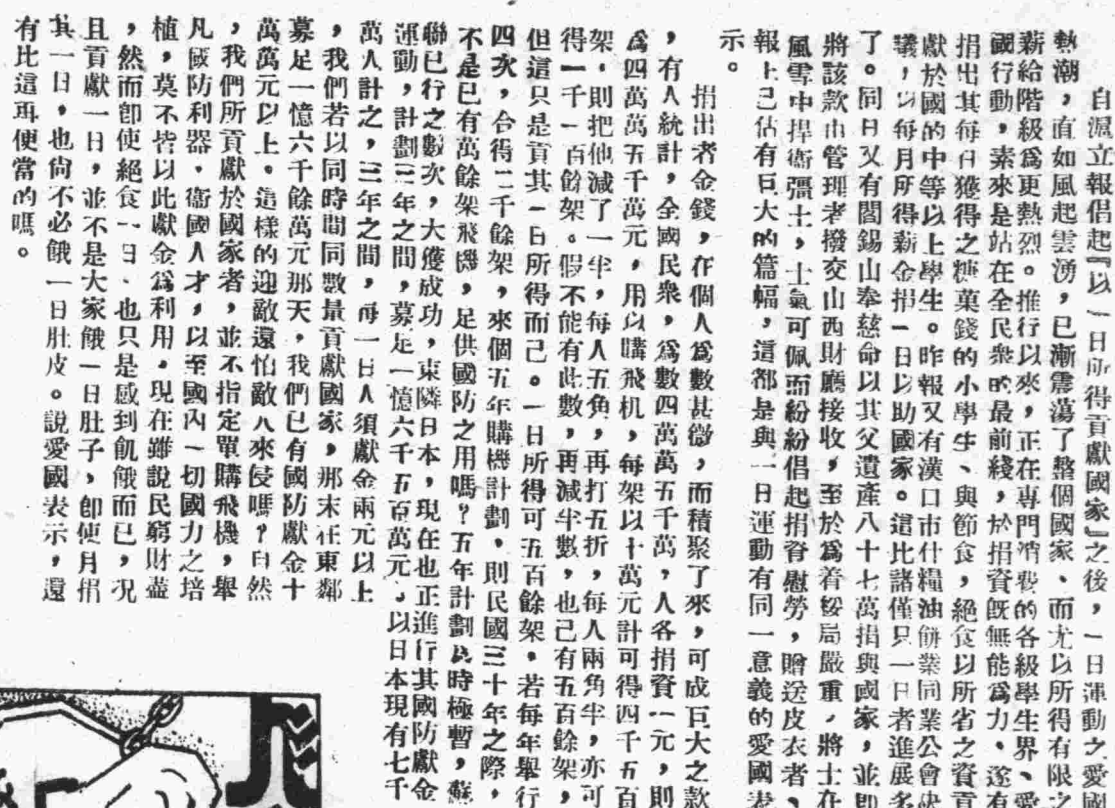 自滬立報倡起『以一日所得貢獻國家』之後，一日運動之愛國
熱潮，直如風起雲湧，已漸震蕩了整個國家、而尤以所得有限之
薪給階級爲更熱烈。推行以來，正在專門消費的各級學生界、愛
國行動，素來是站在全民衆的最前綫，於捐資旣無能爲力、遂有
捐出其每日獲得之糖菓錢的小學生、與節食，絕食以所省之資貢
獻於國的中等以上學生。昨報又有漢口市什糧油餅業同業公會決
議，以每月所得薪金捐一日以助國家。這比諸僅只一日者進展多
了。同日又有閻錫山奉慈命以其父遺產八十七萬捐與國家，並即
將該款由管理者撥交山西財廳接收，至於爲着綏局嚴重，將士在
風雪中捍衞彊土，士氣可佩而紛紛倡起捐資慰勞，贈送皮衣者、
報上己佔有巨大的篇幅，這都是與一日運動有同一意義的愛國表
示。
捐出者金錢，在個人爲數甚微，而積聚了來，可成巨大之款
，有人統計，全國民衆，爲數四萬萬五千萬，人各捐資一元，則
爲四萬萬五千萬元，用以購飛机，每架以十萬元計可得四千五百
架，則把他減了一半，每人五角，再打五折，每人兩角半，亦可
得一千一百餘架。假不能有此數，再減半數，也己有五百餘架，
但這只是貢其一日所得而己。一日所得可五百餘架，若每年舉行
四次，合得二千餘架，來個五年購機計劃，則民國三十年之際，
不是已有萬餘架飛機，足供國防之用嗎？五年計劃爲時極暫，蘇
聯已行之數次，大獲成功，東隣日本，現在也正進行其國防獻金
運動，計劃三年之間，募足一憶六千五百萬元，以日本現有七千
萬人計之，三年之間，每一日人須獻金兩元以上
，我們若以同時間同數量貢獻國家，那末在東鄰
募足一憶六千餘萬元那天，我們已有國防獻金十
萬萬元以上。這樣的迎敵還怕敵人來侵嗎？自然
，我們所貢獻於國家者，並不指定單購飛機，舉
凡國防利器，衞國人才，以至國內一切國力之培
植，莫不皆以此獻金爲利用。現在雖說民窮財盡
，然而卽使絕食一日、也只是感到飢餓而已，況
且貢獻一日，並不是大家餓一日肚子，卽使月捐
其一日，也尙不必餓一日肚皮。說愛國表示，還
有比這再便當的嗎。